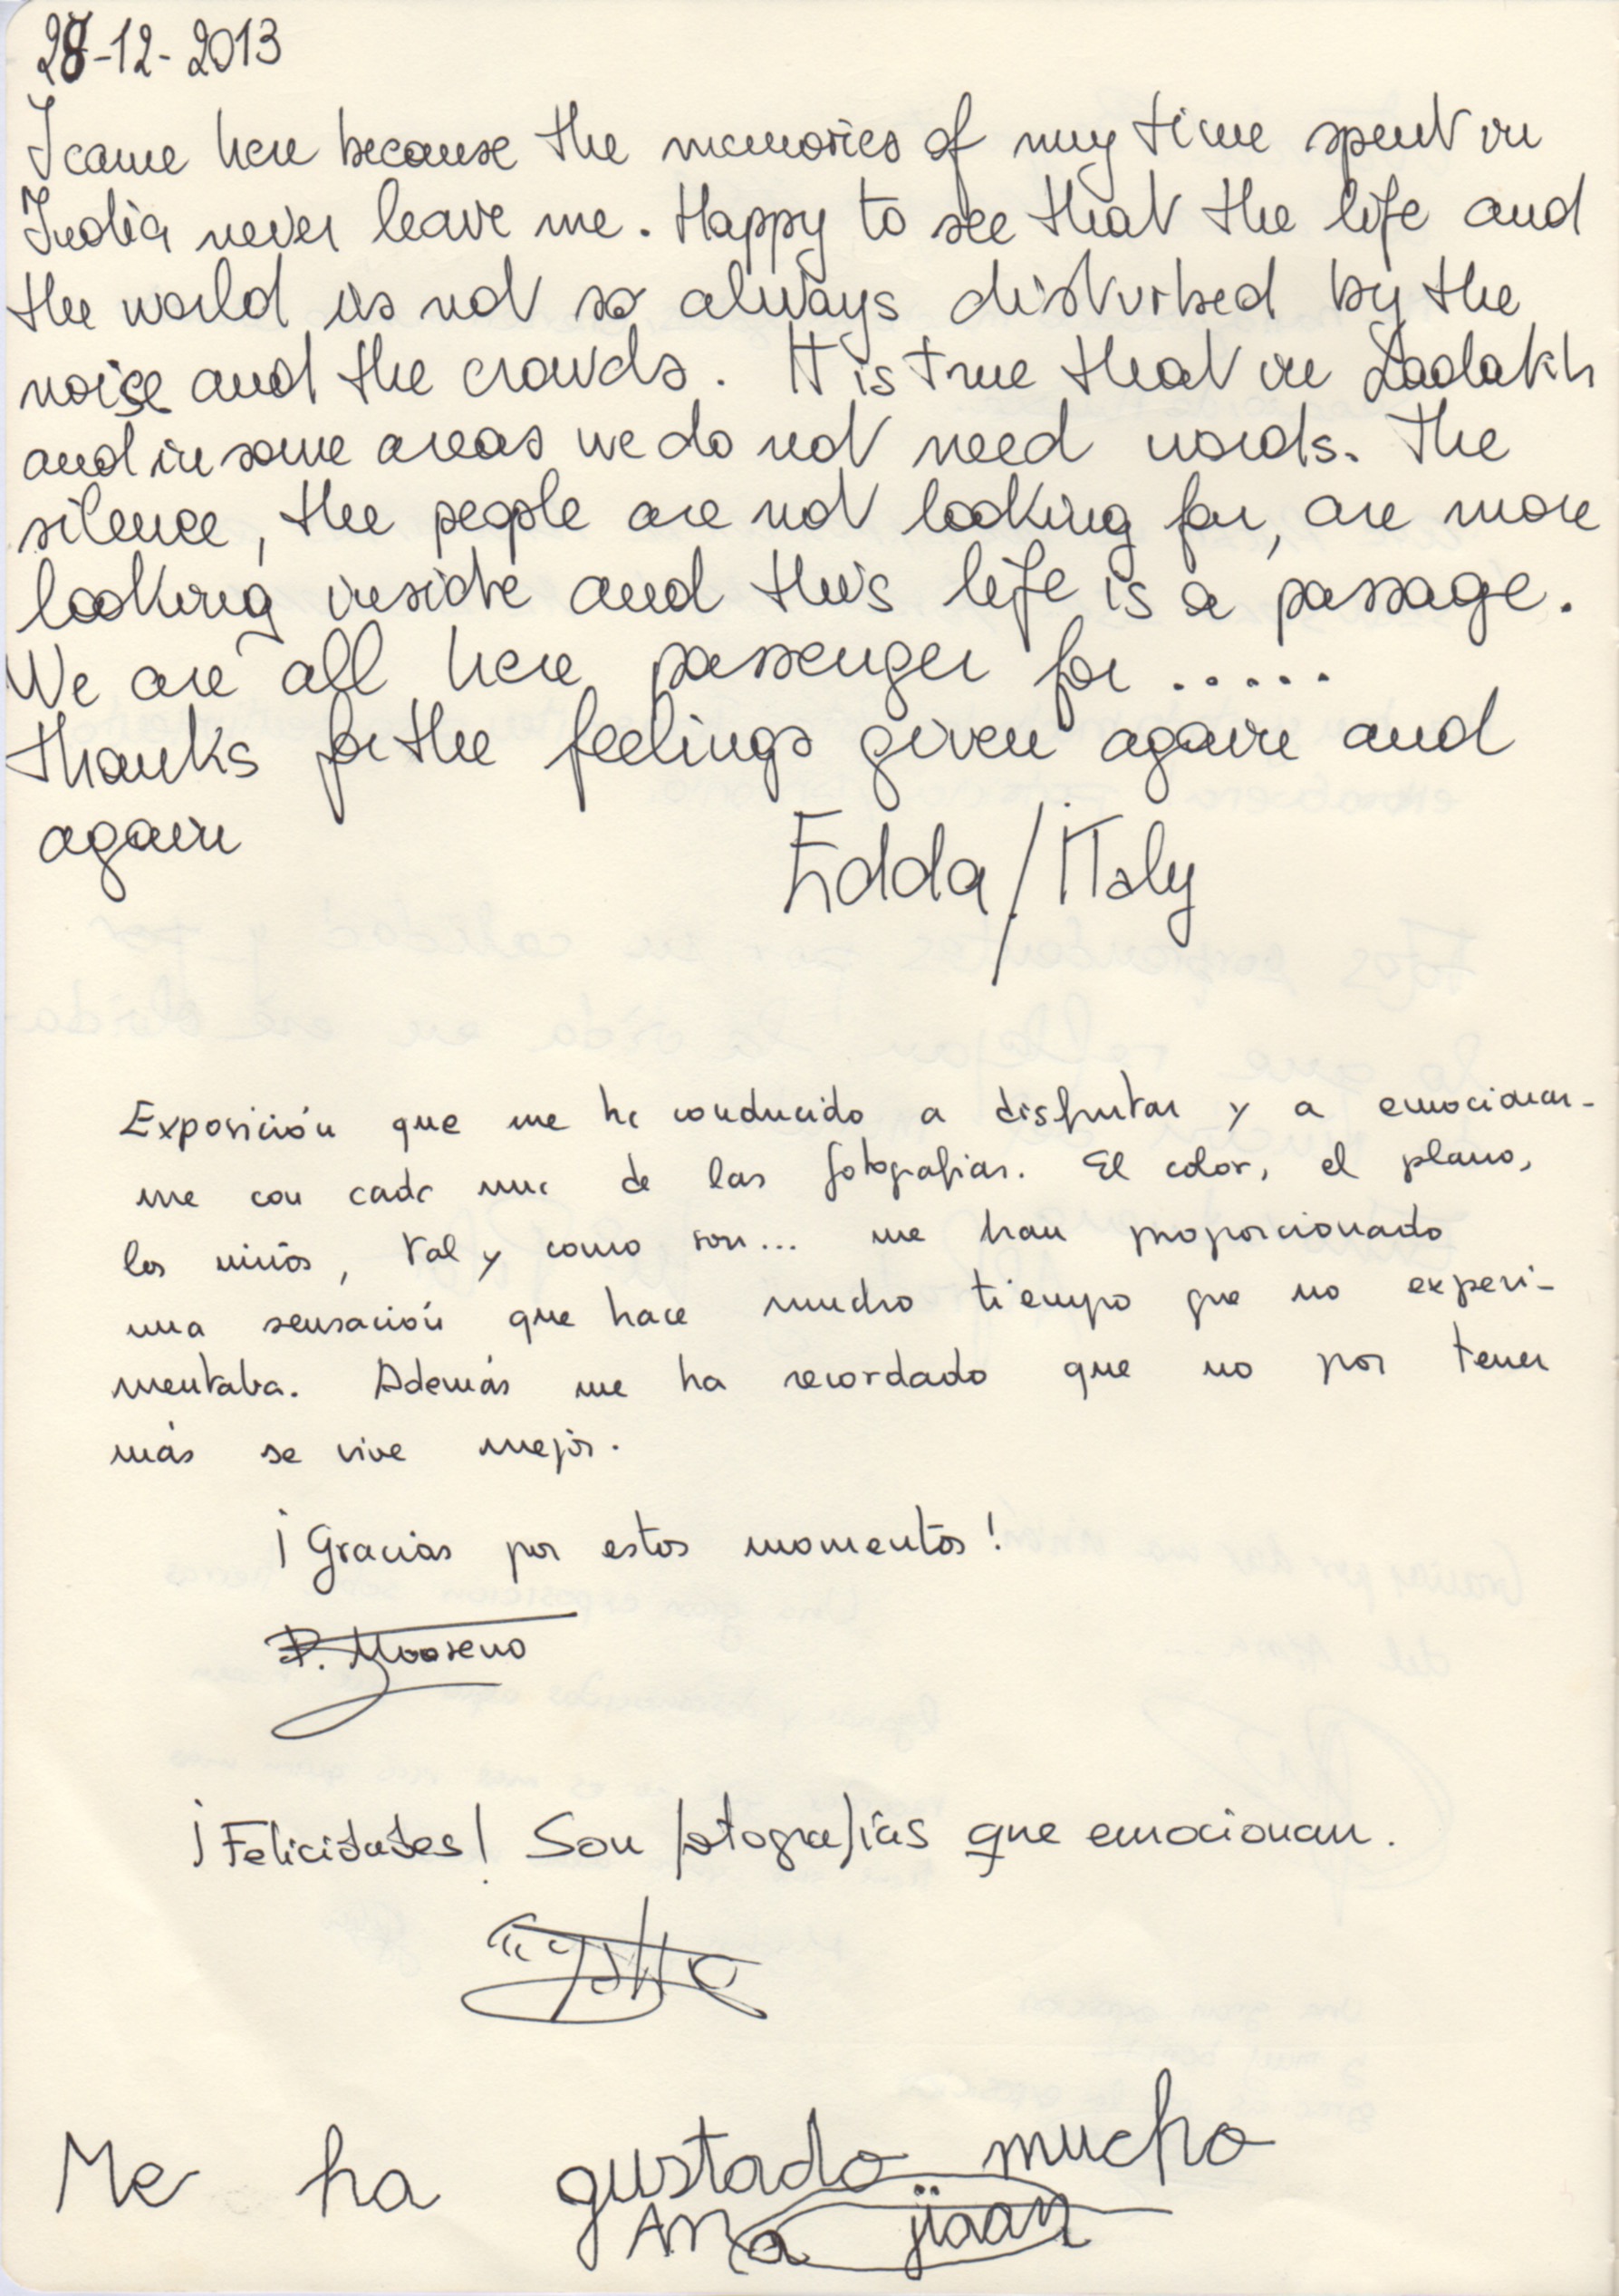 28-12-2013
I came here because the memories of my time spent in
India never leave me. Happy to see that the life and
the world is not so always disturbed by the
noise and the crowds. It is true that in Ladakh
and in some areas we do not need words. The
silence, the people are not looking for, are more
looking inside and this life is a passage.
We are all here passenger for .....
thanks for the feelings given again and
again
Edda/Italy
Exposición que me ha conducido a disfrutar y a emocionar-
me con cada una de las fotografias. El color, el plano,
los niños, tal y como son... me han proporcionado
una sensación que hace mucho tiempo que no experi-
mentaba. Además me ha recordado que no por tener
más se vive mejor.
¡Gracias por estos momentos!
¡Felicidades! Son fotografías que emocionan.
Me ha gustado mucho
Ana